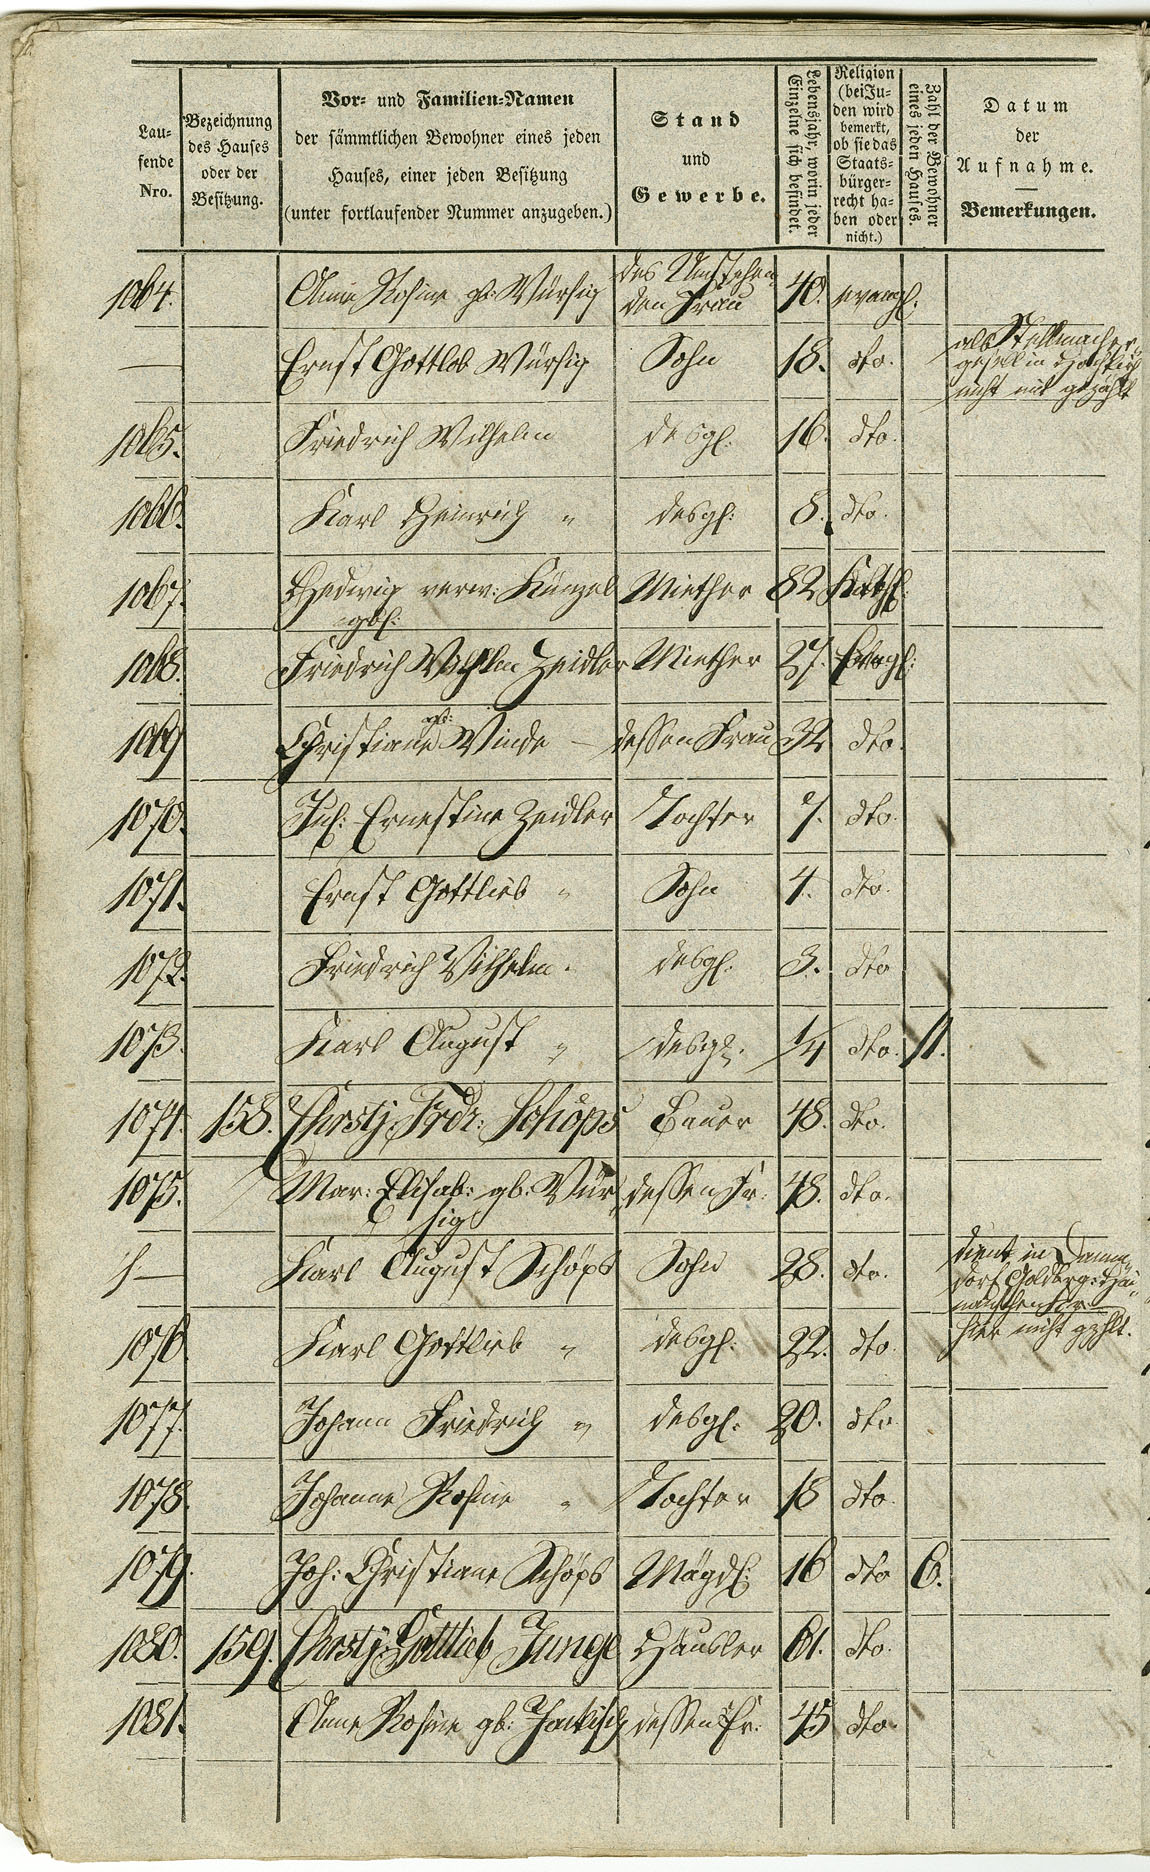 Lau-
fende
Nro.
Bezeichnung
des Hauses
oder der
Besitzung.
Vor- und Familien-Namen
der sämmtlichen Bewohner eines jeden
Hauses, einer jeden Besitzung
(unter fortlaufender Nummer anzugeben.)
Stand
und
Gewerbe.
Lebensjahr, worin jeder
Einzelne sich befindet.
Religion
(bei Ju-
den wird
bemerkt,
ob sie das
Staats-
bürger-
recht ha-
ben oder
nicht.)
Zahl der Bewohner
eines jeden Hauses.
Datum
der
Aufnahme.
Bemerkungen.
1064. Anna Rosine gb: Würsig des Umstehen den Frau 40. evangl:
— Ernst Gottlob Würsig Sohn 18. dto. als Stellmacher-
gesell in
nicht mit gezählt
1065. Friedrich Wilhelm desgl: 16. dto.
1066. Karl Heinrich " desgl: 8. dto.
1067. Hedwig verw: Künzel Miether 82 Kathl:
gbl:
1068. Friedrich Wilhelm Zeidler Miether 27. Evagl:
1069 Christiane gb: Winde — dessen Frau 32 dto.
1070. Joh: Ernestine Zeidler Tochter 7. dto.
1071. Ernst Gottlieb " Sohn 4. dto.
1072. Friedrich Wilhelm " desgl. 3. dto
1073. Karl August " desgl. 1/4 dto. 11.
1074. 158. Christ. Frdr: Schöps Bauer 48. dto.
1075. Mar: Elisab: gb: Wür- dessen Fr. 48. dto.
sig
— Karl August Schöps Sohn 28. dto. dient in
dorf Goldberg: Hai-
hier nicht gezhlt.
1076. Karl Gottlieb " desgl. 22. dto.
1077. Johann Friedrich " desgl: 20. dto.
1078. Johanne Rosine " Tochter 18 dto.
1079. Joh: Christiane Schöps Mägdl: 16 dto 6.
1080. 159. Christ. Gottlieb Junge Häusler 61. dto.
1081. Anna Rosine gb: Jackisch dessen Fr. 45 dto.